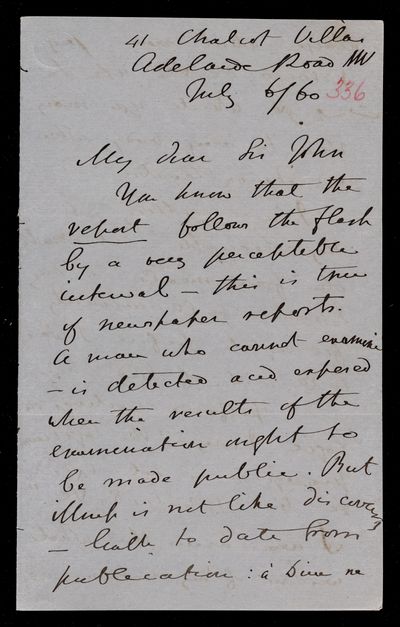 41 Chalcot Villas
Adelaide Road NW
July 6/60 336
My dear Sir John
You know that the
report follows the flash
by a very perceptible
interval – this is true
of newspaper reports.
A man who cannot examine
– is detected and exposed
when the results of the
examination ought to
be made public. But
is not like discovery
– to date from
publication : à Dieu ne